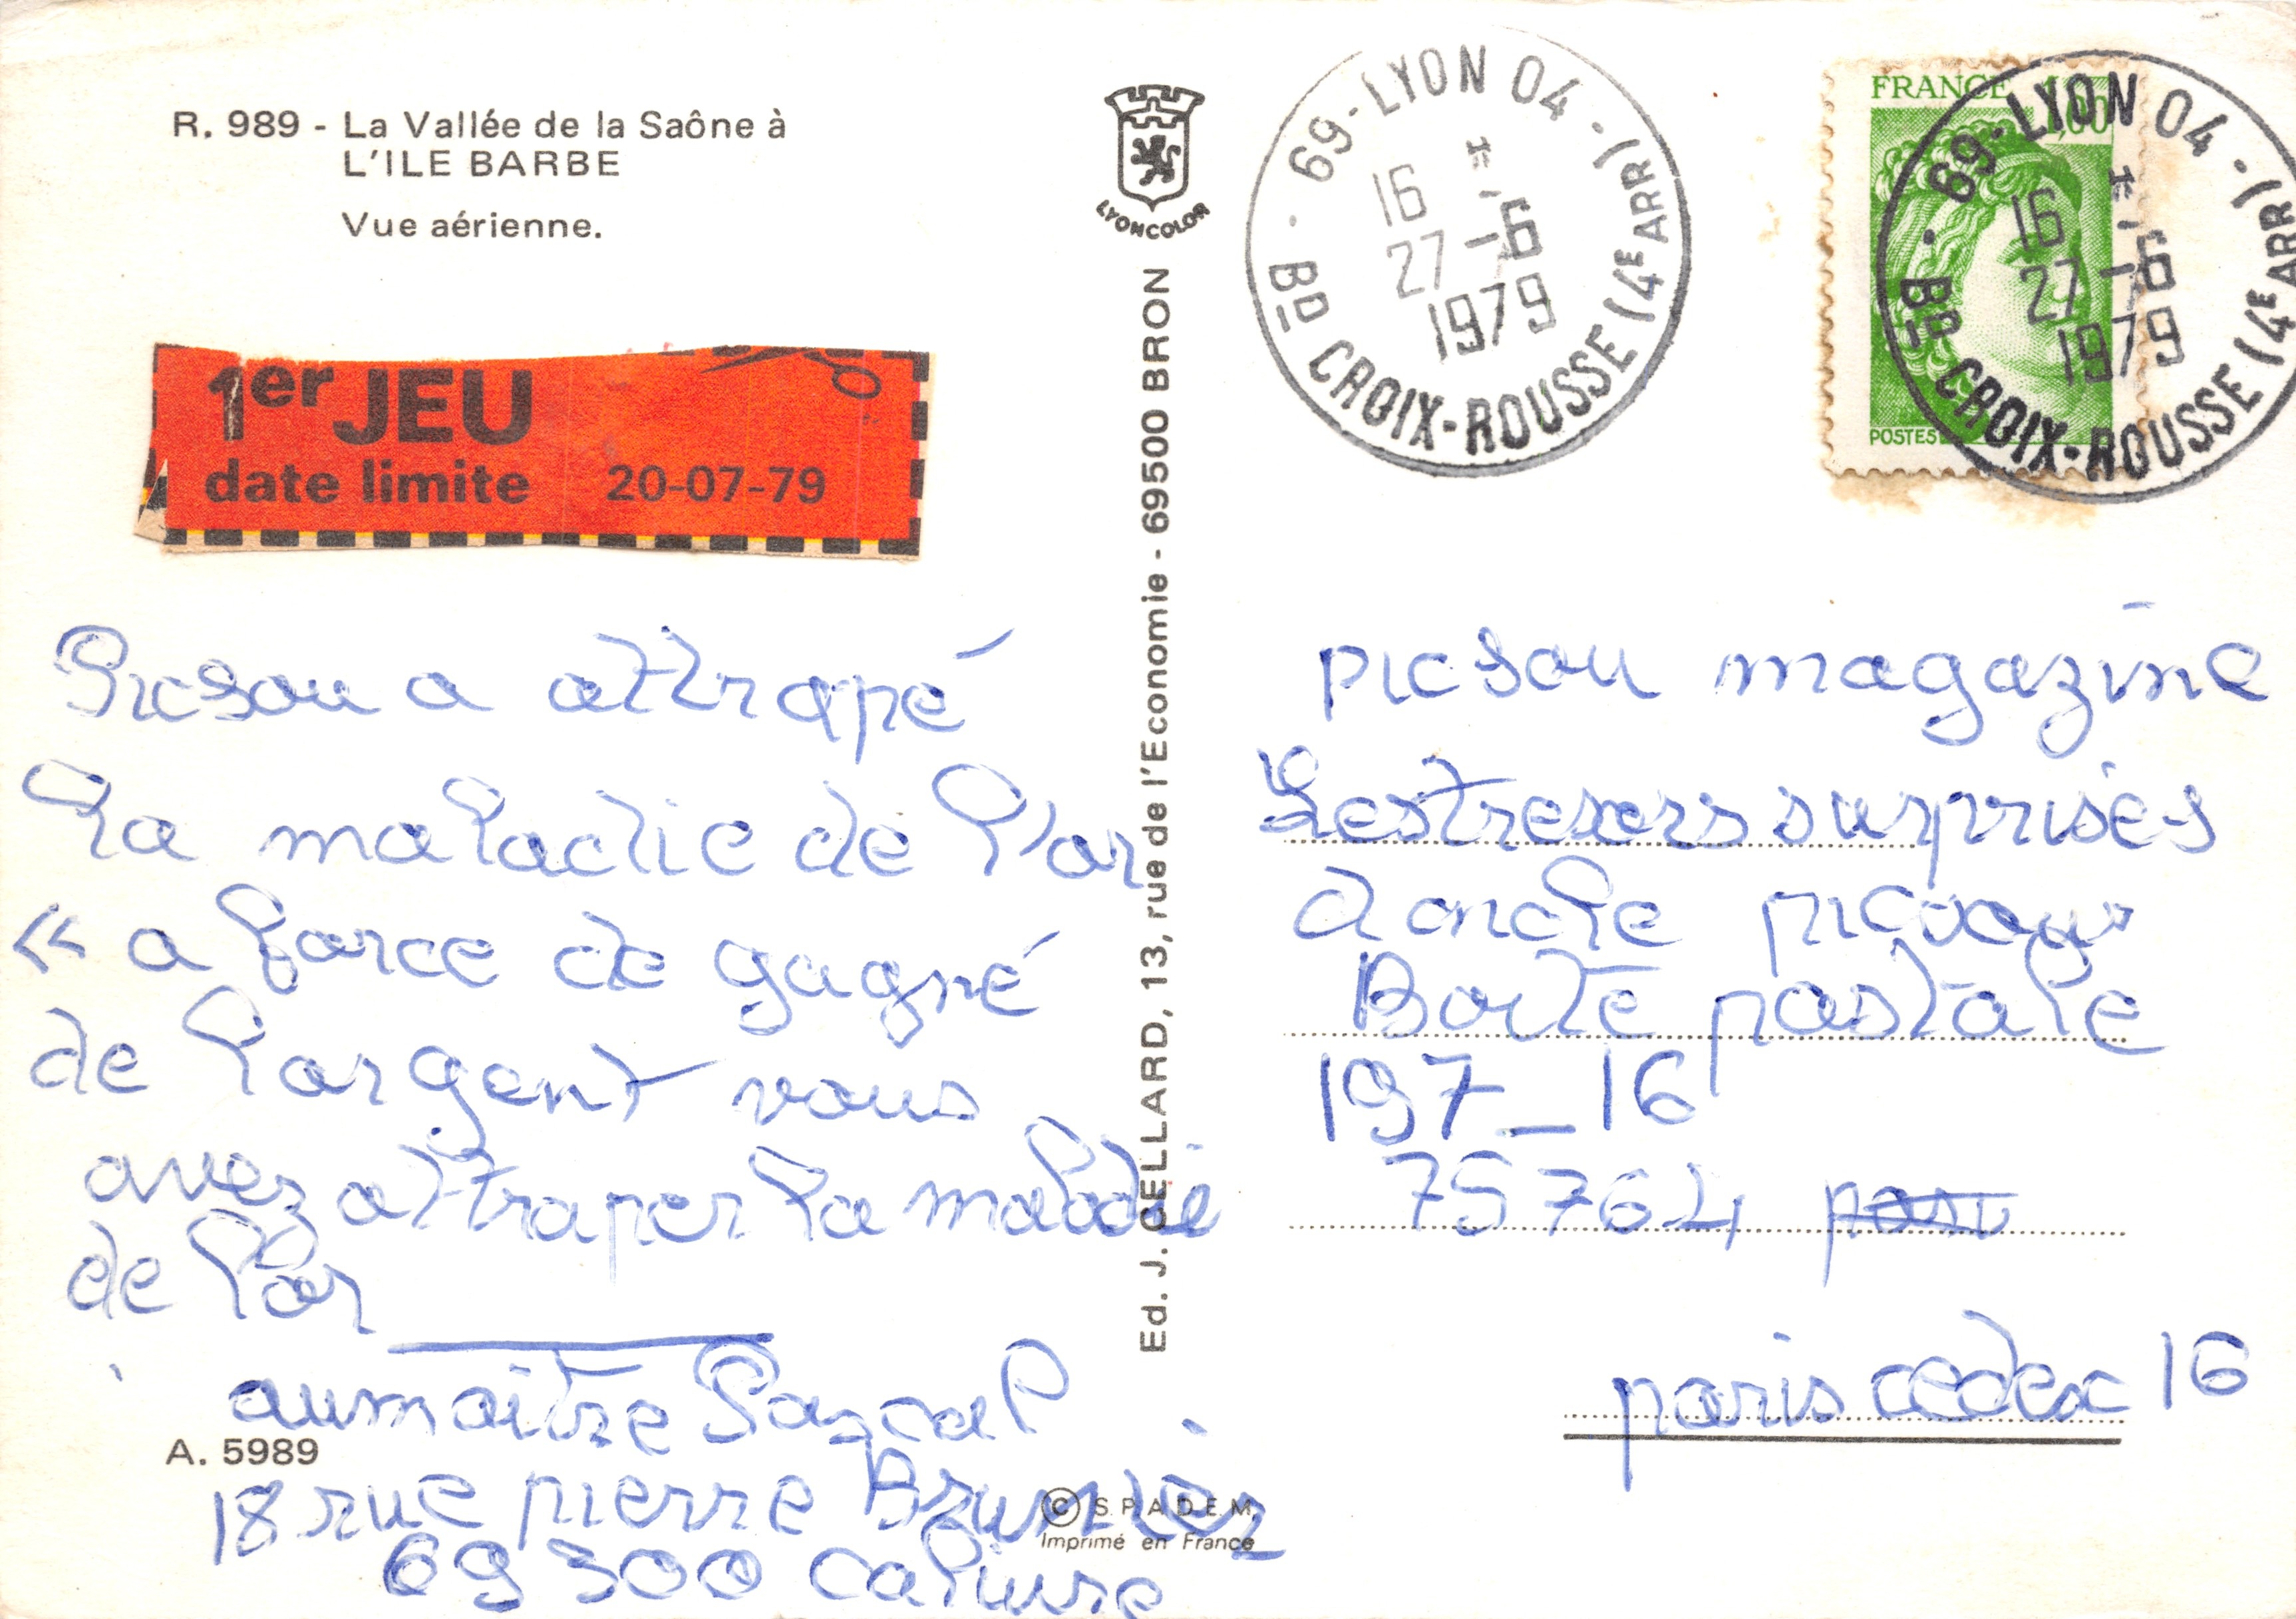 R. 989 - La Vallée de la Saône à
L'ILE BARBE
Vue aérienne.
1er JEU
date limite 20-07-79
Picsou a attrapé
la maladie de l'or
« a force de gagné
de l'argent vous
avez attraper la maladie
de l'or
aumaitre Pascal
A. 5989
18 rue pierre Brunier
69300 caluire
LYONCOLOR
Ed. J. CELLARD, 13, rue de l'Economie - 69500 BRON
© S.P.A.D.E.M.
Imprimé en France
69-LYON 04
16 H
27-6
1979
BD CROIX-ROUSSE (4E ARR)
FRANCE 1,00
POSTES
69-LYON 04
16 H
27-6
1979
BD CROIX-ROUSSE (4E ARR)
picsou magazine
Les tresers surprises
d oncle picsou
Boite postale
197_16
75764
paris cedex 16